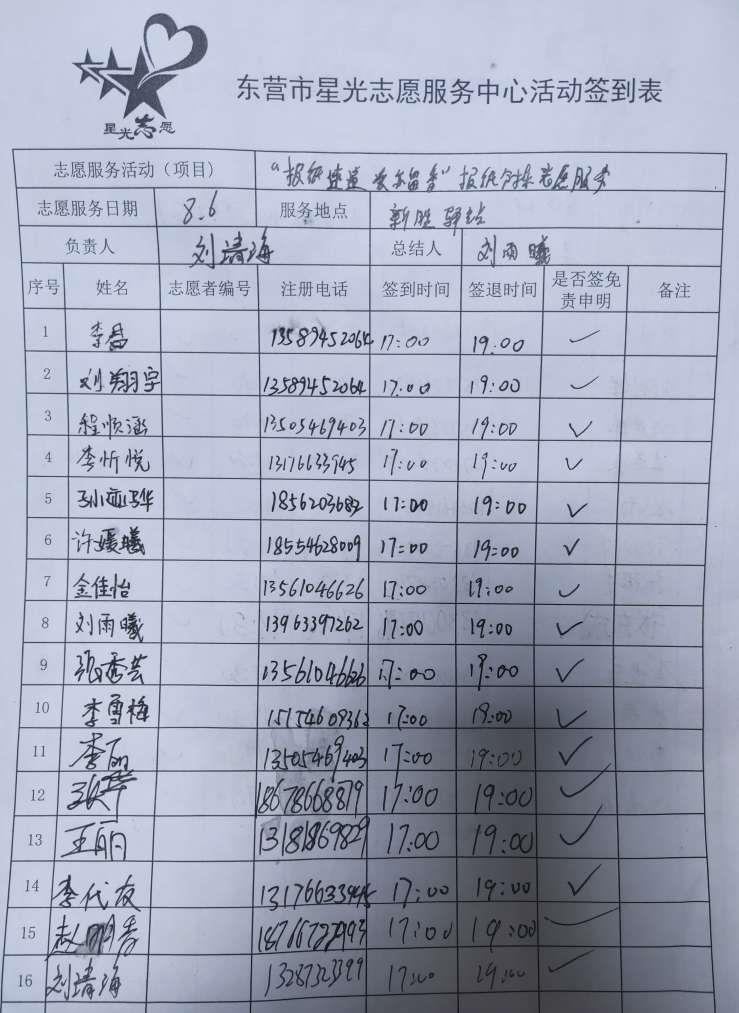 星光志愿
东营市星光志愿服务中心活动签到表
志愿服务活动（项目） 报纸 报纸 志愿服务
志愿服务日期 8.6 服务地点 新胜驿站
负责人 刘靖海 总结人 刘雨曦
序号 姓名 志愿者编号 注册电话 签到时间 签退时间 是否签免责申明 备注
1 李 13589452064 17:00 19:00 ✓
2 刘翔宇 13589452064 17:00 19:00 ✓
3 程顺涵 13505469403 17:00 19:00 ✓
4 李忻悦 13176633945 17:00 19:00 ✓
5 1856203682 17:00 19:00 ✓
6 许媛曦 18554628009 17:00 19:00 ✓
7 金佳怡 13561046626 17:00 19:00 ✓
8 刘雨曦 13963397262 17:00 19:00 ✓
9 张秀芸 13561046626 17:00 19:00 ✓
10 李雪梅 15154609362 17:00 19:00 ✓
11 李丽 13505469403 17:00 19:00 ✓
12 18678668879 17:00 19:00 ✓
13 王丽 13181869829 17:00 19:00 ✓
14 李代友 13176633945 17:00 19:00 ✓
15 17:00 19:00 ✓
16 刘靖海 13287323399 17:00 19:00 ✓